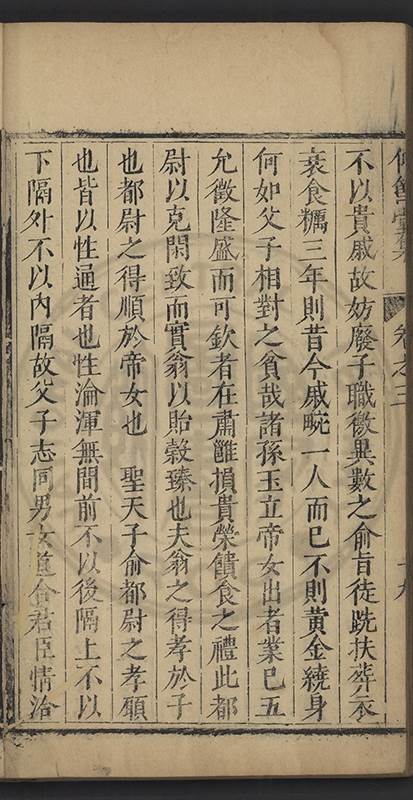 卷之三
不以貴戚故妨廢子職徼異數之俞旨徒跣扶葬衣
衰食糲三年則昔今戚畹一人而已不則黃金繞身
何如父子相對之貧哉諸孫玉立帝女出者業已五
允徵隆盛而可欽者在肅雝損貴榮饋食之禮此都
尉以克閑致而實翁以貽穀臻也夫翁之得孝於子
也都尉之得順於帝女也 聖天子俞都尉之孝願
也皆以性通者也性淪渾無間前不以後隔上不以
下隔外不以內隔故父子志同男女道合君臣情洽